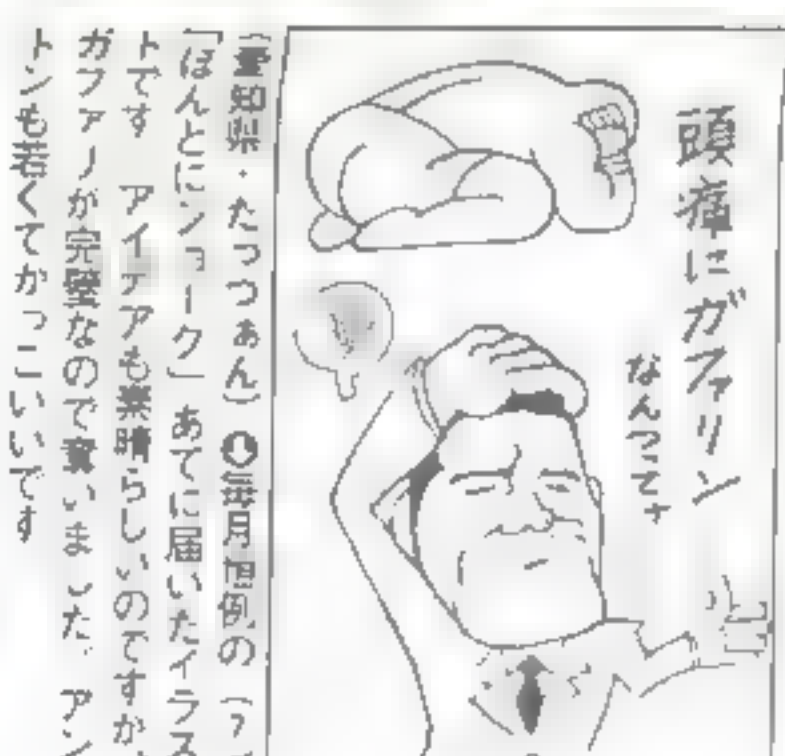 頭痛にガファリン
なんつって
(愛知県・たっつぁん) 毎月恒例の(?)
「ほんとにジョーク」あてに届いたイラス
トです アイデアも素晴らしいのですが、
ガファリが完璧なので驚いました。アン
トンも若くてかっこいいです